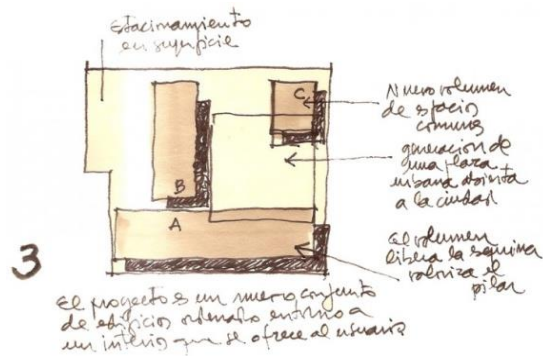 Estacionamiento
en superficie
C
B
A
Nuevo volumen
de espacios
comunes
generacion de
una plaza
urbana abierta
a la ciudad
El volumen
libera la esquina
valoriza el
pilar
3
El proyecto es un nuevo conjunto
de edificios ordenado entorno a
un interior que se ofrece al usuario